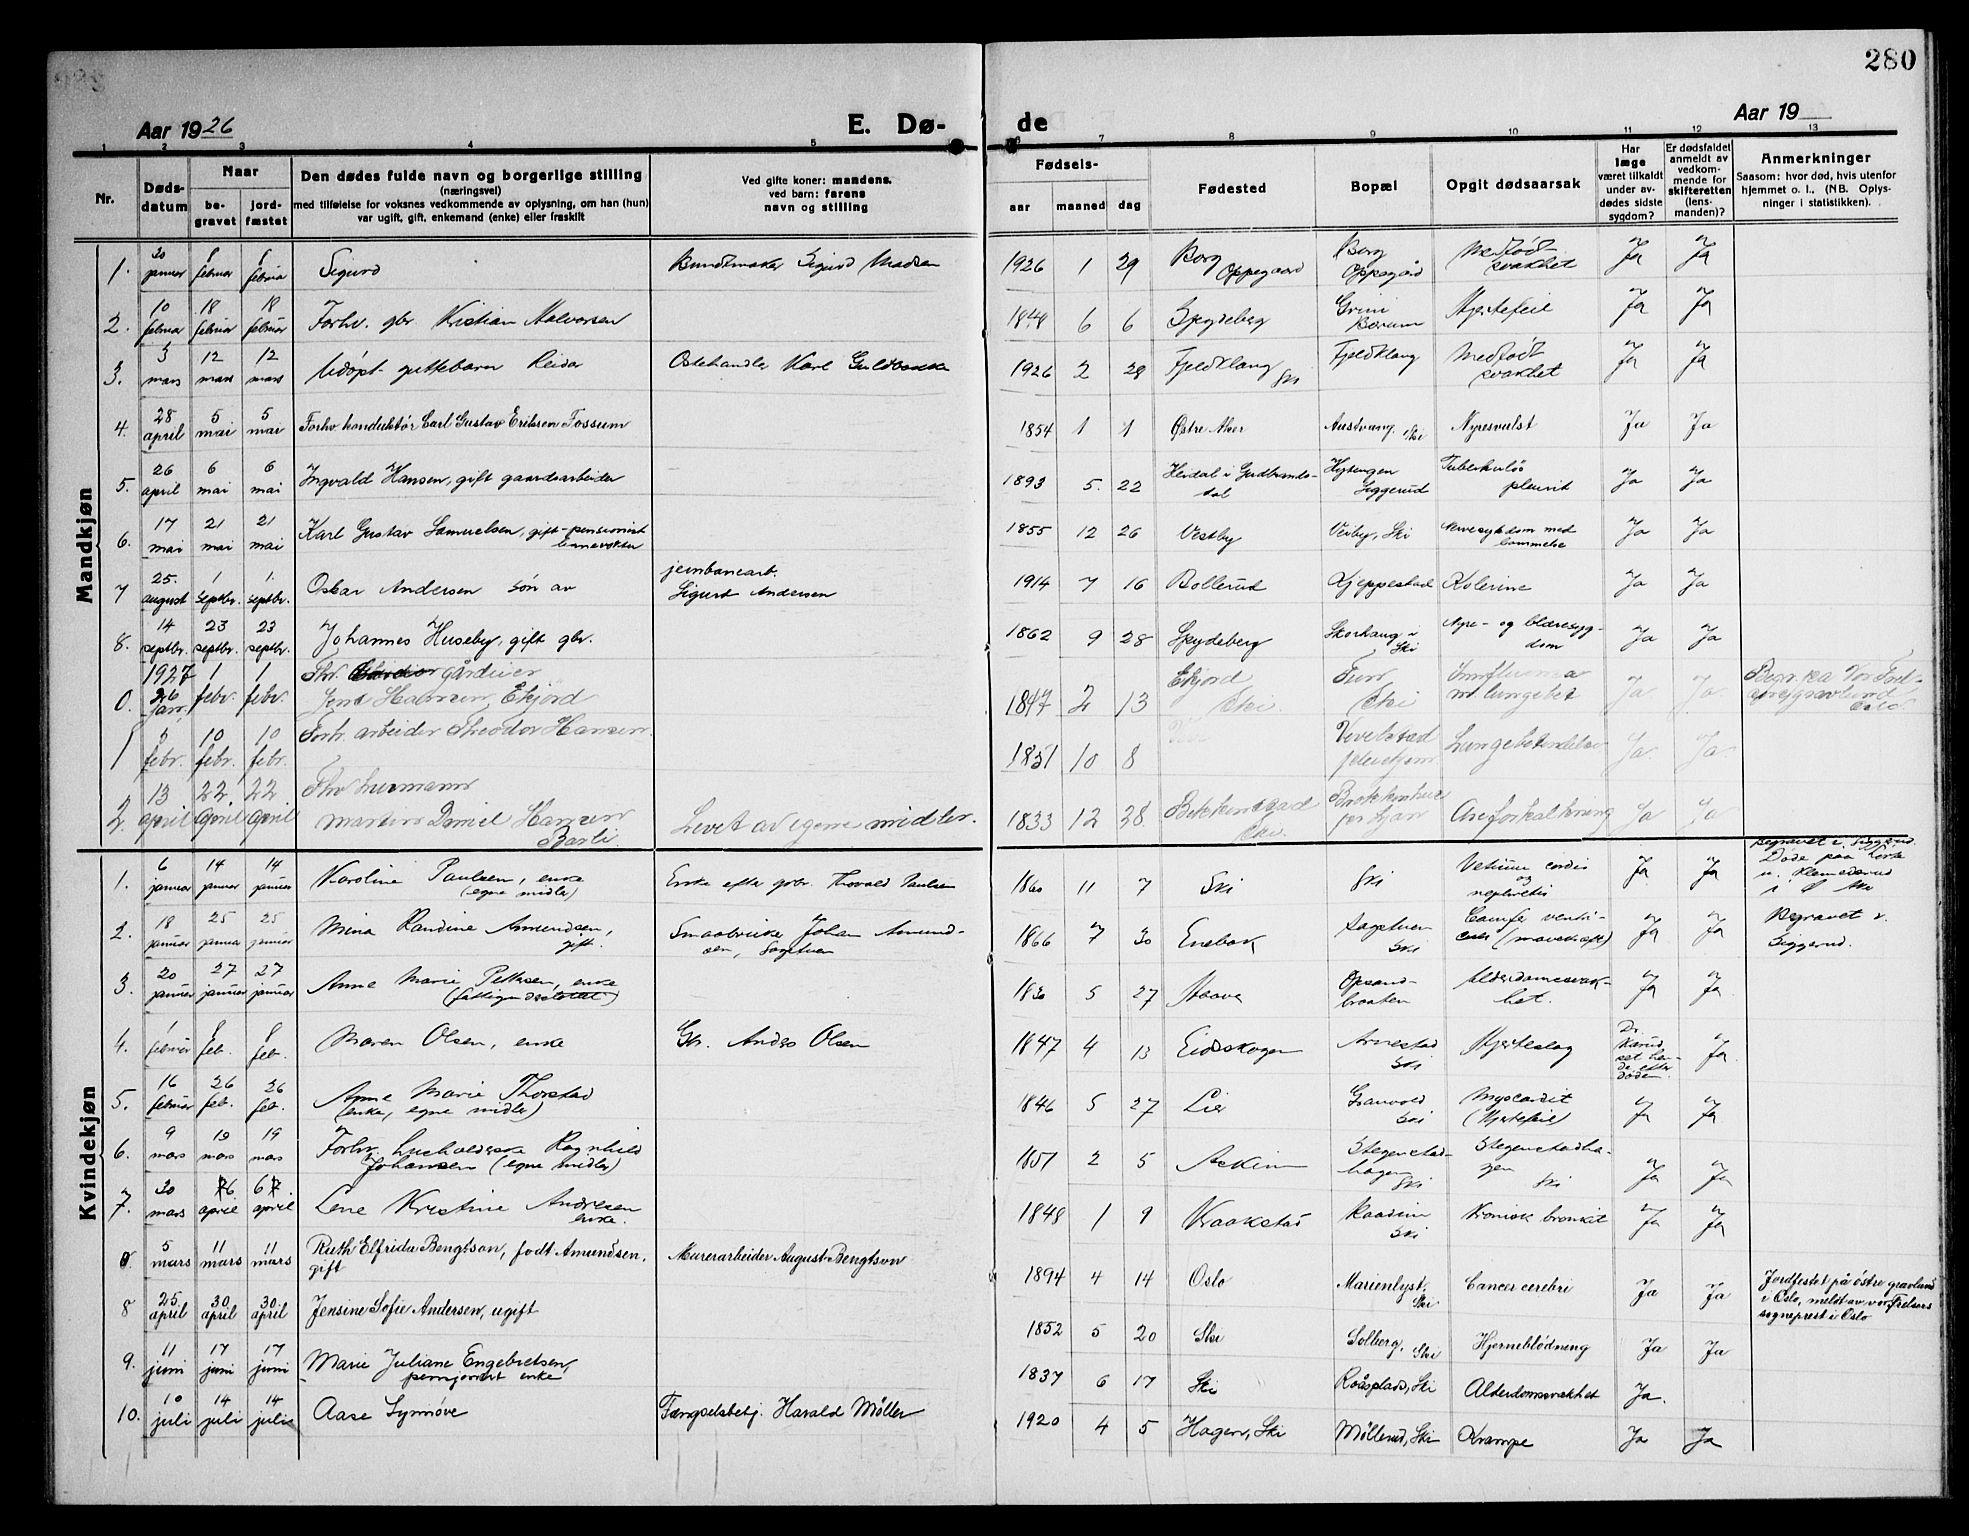 280
Aar 1926
E. Dø-
de
Aar 19
1 2 3 4 5 6 7 8 9 10 11 12 13
Nr.
Døds-
datum
Naar
be-
gravet
jord-
fæstet
Den dødes fulde navn og borgerlige stilling
(næringsvei)
med tilføielse for voksnes vedkommende av oplysning, om han (hun)
var ugift, gift, enkemand (enke) eller fraskilt
Ved gifte koner: mandens.
ved barn: farens
navn og stilling
Fødsels-
aar maaned dag
Fødested
Bopæl
Opgit dødsaarsak
Har
læge
været tilkaldt
under av-
dødes sidste
sygdom?
Er dødsfaldet
anmeldt av
vedkom-
mende for
skifteretten
(lens-
manden)?
Anmerkninger
Saasom: hvor død, hvis utenfor
hjemmet o. l., (NB. Oplys-
ninger i statistikken).
Mandkjøn
1. 30 januar 6 februar 6 februar Sigurd Buntmaker Sigurd Madsen 1926 1 29 Borg Oppegaard Borg Oppegård Medfødt svakhet Ja Ja
2. 10 februar 18 februar 18 februar Forhv. gbr Kristian Halvorsen 1848 6 6 Spydeberg Grini Bærum Hjertefeil Ja Ja
3. 3 mars 12 mars 12 mars Udøpt guttebarn Reidar Ostehandler Karl Guldbakke 1926 2 28 Fjeldklang Ski Fjeldklang Medfødt svakhet Ja Ja
4. 28 april 5 mai 5 mai Forhv konduktør Carl Gustav Eriksen Fossum 1854 1 1 Østre Aker Austvang, Ski Nyresvulst Ja Ja
5. 26 april 6 mai 6 mai Ingvald Hansen, gift gaardsarbeider 1893 5. 22 Heidal i Gudbrands-dal Siggerud Tuberkuløs pleurit Ja Ja
6. 17 mai 21 mai 21 mai Karl Gustav Samuelsen, gift - pensionist banevokter 1855 12 26 Vestby Veiby, Ski Nervesykdom med lammelse Ja Ja
7 25. august 1 septbr. 1. septbr. Oskar Andersen søn av jernbanearb. Sigurd Andersen 1914 7 16 Bollerud Kjeppestad Kolerine Ja Ja
8. 14 septbr. 23 septbr. 23 septbr. Johannes Huseby, gift gbr. 1862 9 28 Spydeberg Skorhaug i Ski Nyre- og blæresyg-dom Ja Ja
0. 1927 26 Jan. 1 febr. 1 febr. Fhv. gårdeier Jens Halvorsen, Ekjord 1847 2 13 Ekjord Ski Ski Influensa m. lungebet Ja Ja
1 5 febr. 10 febr. 10 febr. Forh. arbeider Theodor Hansen 1851 10 8 Vevelstad pleiehjem Lungebetændelse Ja Ja
2. 13 april 22. april 22 april Fhv Martin Daniel Hansen Barli. Levet av egne midler. 1833 12 28. Bekkenstad Ski. Areforkalkning Ja Ja
Kvindekjøn
1. 6 januar 14 januar 14 januar Karoline Paulsen, enke (egne midler) Enke efter gbr. Thorvald Paulsen 1860 11 7 Ski Ski Vitium cordis og nephritis Ja Ja Begravet v. Siggerud. Døde paa
2. 18 januar 25 januar 25 januar Mina Randine Amundsen, gift. Smaabruker Johan Amund-sen, Sagstuen 1866 7 30 Enebak Sagstuen Ski (mavekræft) Ja Ja Begravet v. Siggerud.
3. 20 januar 27 januar 27 januar Anne Marie Pettersen, enke (fattigunderstøttet) 1830 5 27 Opsand-braaten Alderdomssvak-het. Ja Ja
4. 1 februar 8 feb. 8 feb. Maren Olsen, enke Gbr. Anders Olsen 1847 4 13 Eidskogen Arnestad Ski Hjerteslag Dr. Ja
5. 16 februar 26 feb. 26 feb. Anne Marie Thorstad (enke, egne midler) 1846 5 27 Lier Ski Myocardit (Hjertefeil Ja Ja
6. 9 mars 19 mars 19 mars Forhv. Ragnhild Johansen (egne midler) 1851 2 5 Askim Stegenstad-hagen Ski Stegenstadha-gen Ski Ja Ja
7. 30 mars 6 april 6 april Lene Kristine Andresen enke. 1848 1 9 Kraakstad Ski Kronisk bronkit Ja Ja
8. 5 mars 11 mars 11 mars Ruth Elfrida Bengtson, født Amundsen, gift Murerarbeider August Bengtson 1894 4 14 Oslo Marienlyst, Ski Cancer cerebri Ja Ja Jordfestet på østre gravlund i Oslo, meldt av vor Frelsers sogneprest i Oslo
8 25 april 30 april 30 april Jensine Sofie Andersen, ugift 1852 5 20 Ski Solberg, Ski Hjerneblødning Ja Ja
9. 11 juni 17 juni 17 juni Marie Juliane Engebretsen, pensjonert enke 1837 6 17 Ski Roåsplads, Ski Alderdomssvakhet Ja.
10. 10 juli 14 juli 14 juli Aase Synnøve Fængselsbetj. Harald Møller 1920 4 5 Hagen, Ski Møllerud, Ski Krampe Ja Ja